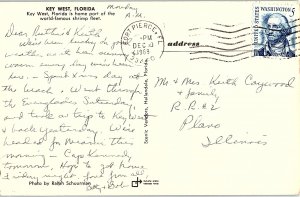 KEY WEST, FLORIDA
Key West, Florida is home part of the
world-famous shrimp fleet.
Monday
A.M.
Dear Ruthie & Keith
We've been lucky on our
weather, it has been
warm every day we've been
here - Spent Sun day at
the beach. Went through
the Everglades Saturday,
and took a trip to Key West
& back yesterday. We're
headed for this
morning - Cape Kennedy
tomorrow. Hope to get home
Friday night. Love from all
Bob
Photo by Ralph Schuurman
Scenic Vendors, Hollandale, Florida
FORT PIERCE, FL
PM
DEC
1968
address
UNITED STATES
WASHINGTON
5c
Mr & Mrs Keith Caywood
& family
R.R. # 2
Plano
Illinois